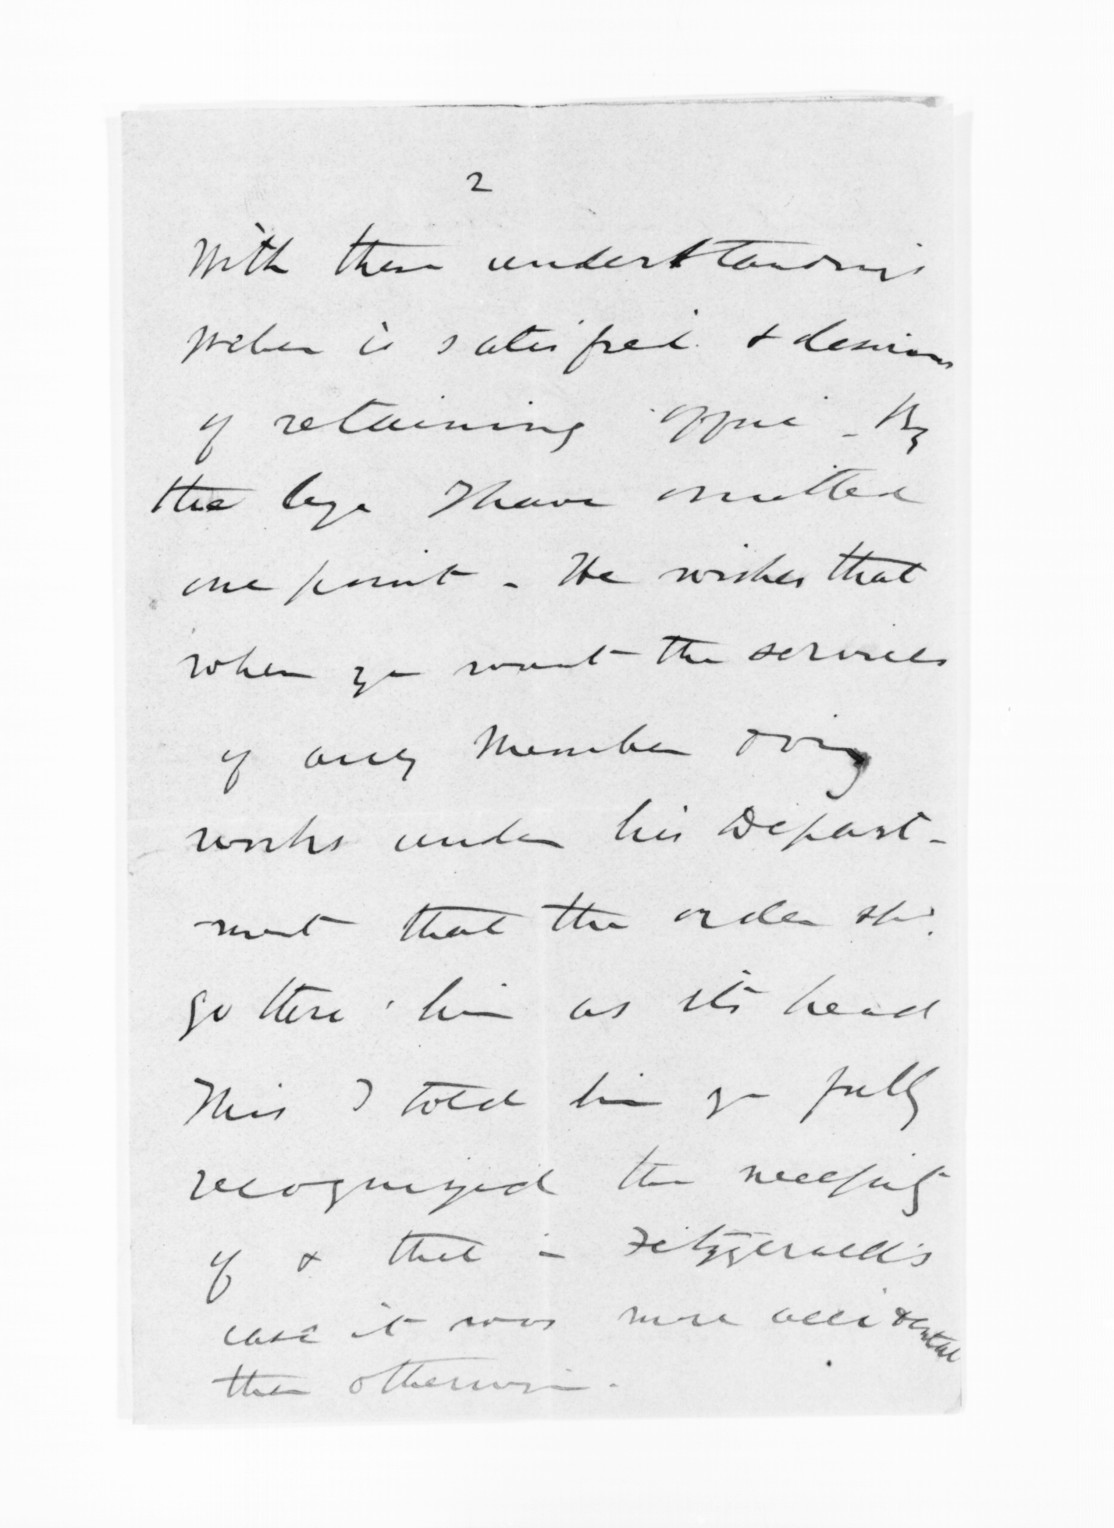 2
With these understandings
Weber is satisfied & desirous
of retaining office – By
the bye I have omitted
one point – He wishes that
when you want the services
of any Member doing
works under his Depart-
ment that the order shd.
go there' him as its head
This I told him you fully
recognized the necessity
of & that in Fitzgerald's
case it was more accidental
than otherwise.